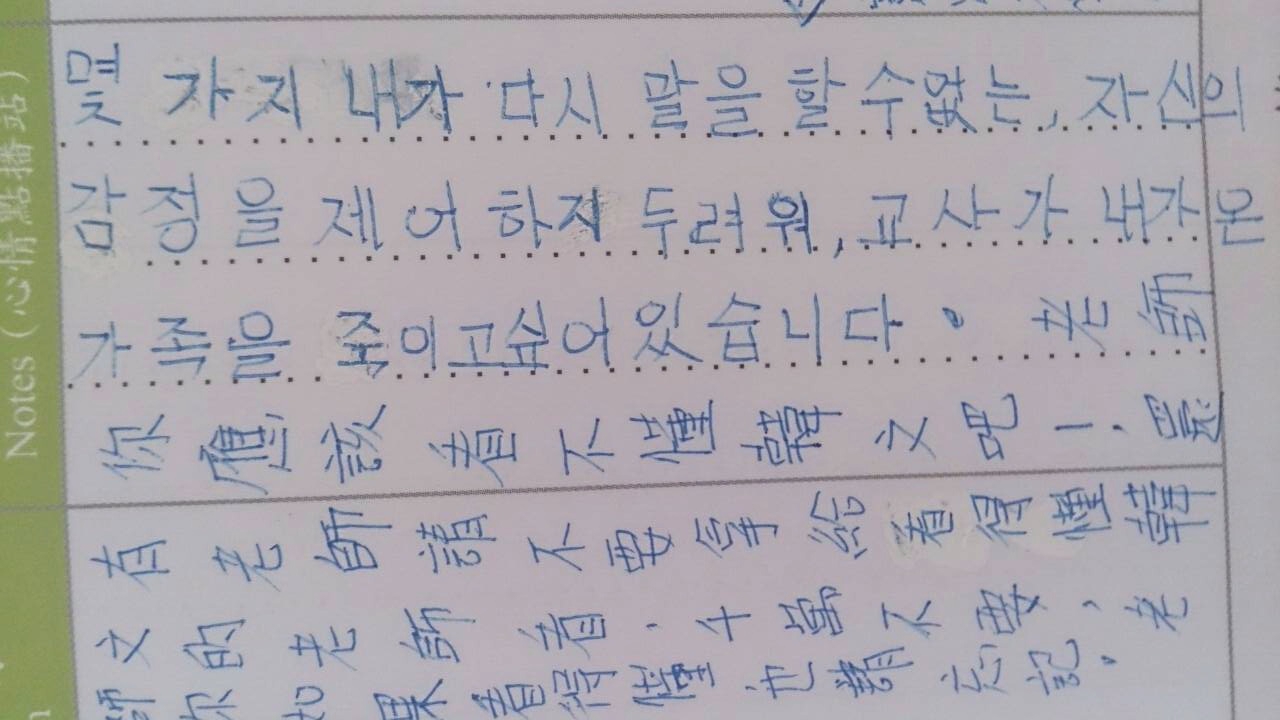 Notes（心情點播站）
몇 가지 내가 다시 말을 할 수없는, 자신의
감정을 제어 하지 두려워, 교사가 내가 온
가족을 죽의고싶어있습니다。老師
你應該看不懂韓文吧！,還
有老師請不要拿給看得懂韓
文的老師看,千萬不要,老
師你如果看得懂,也請忘記。